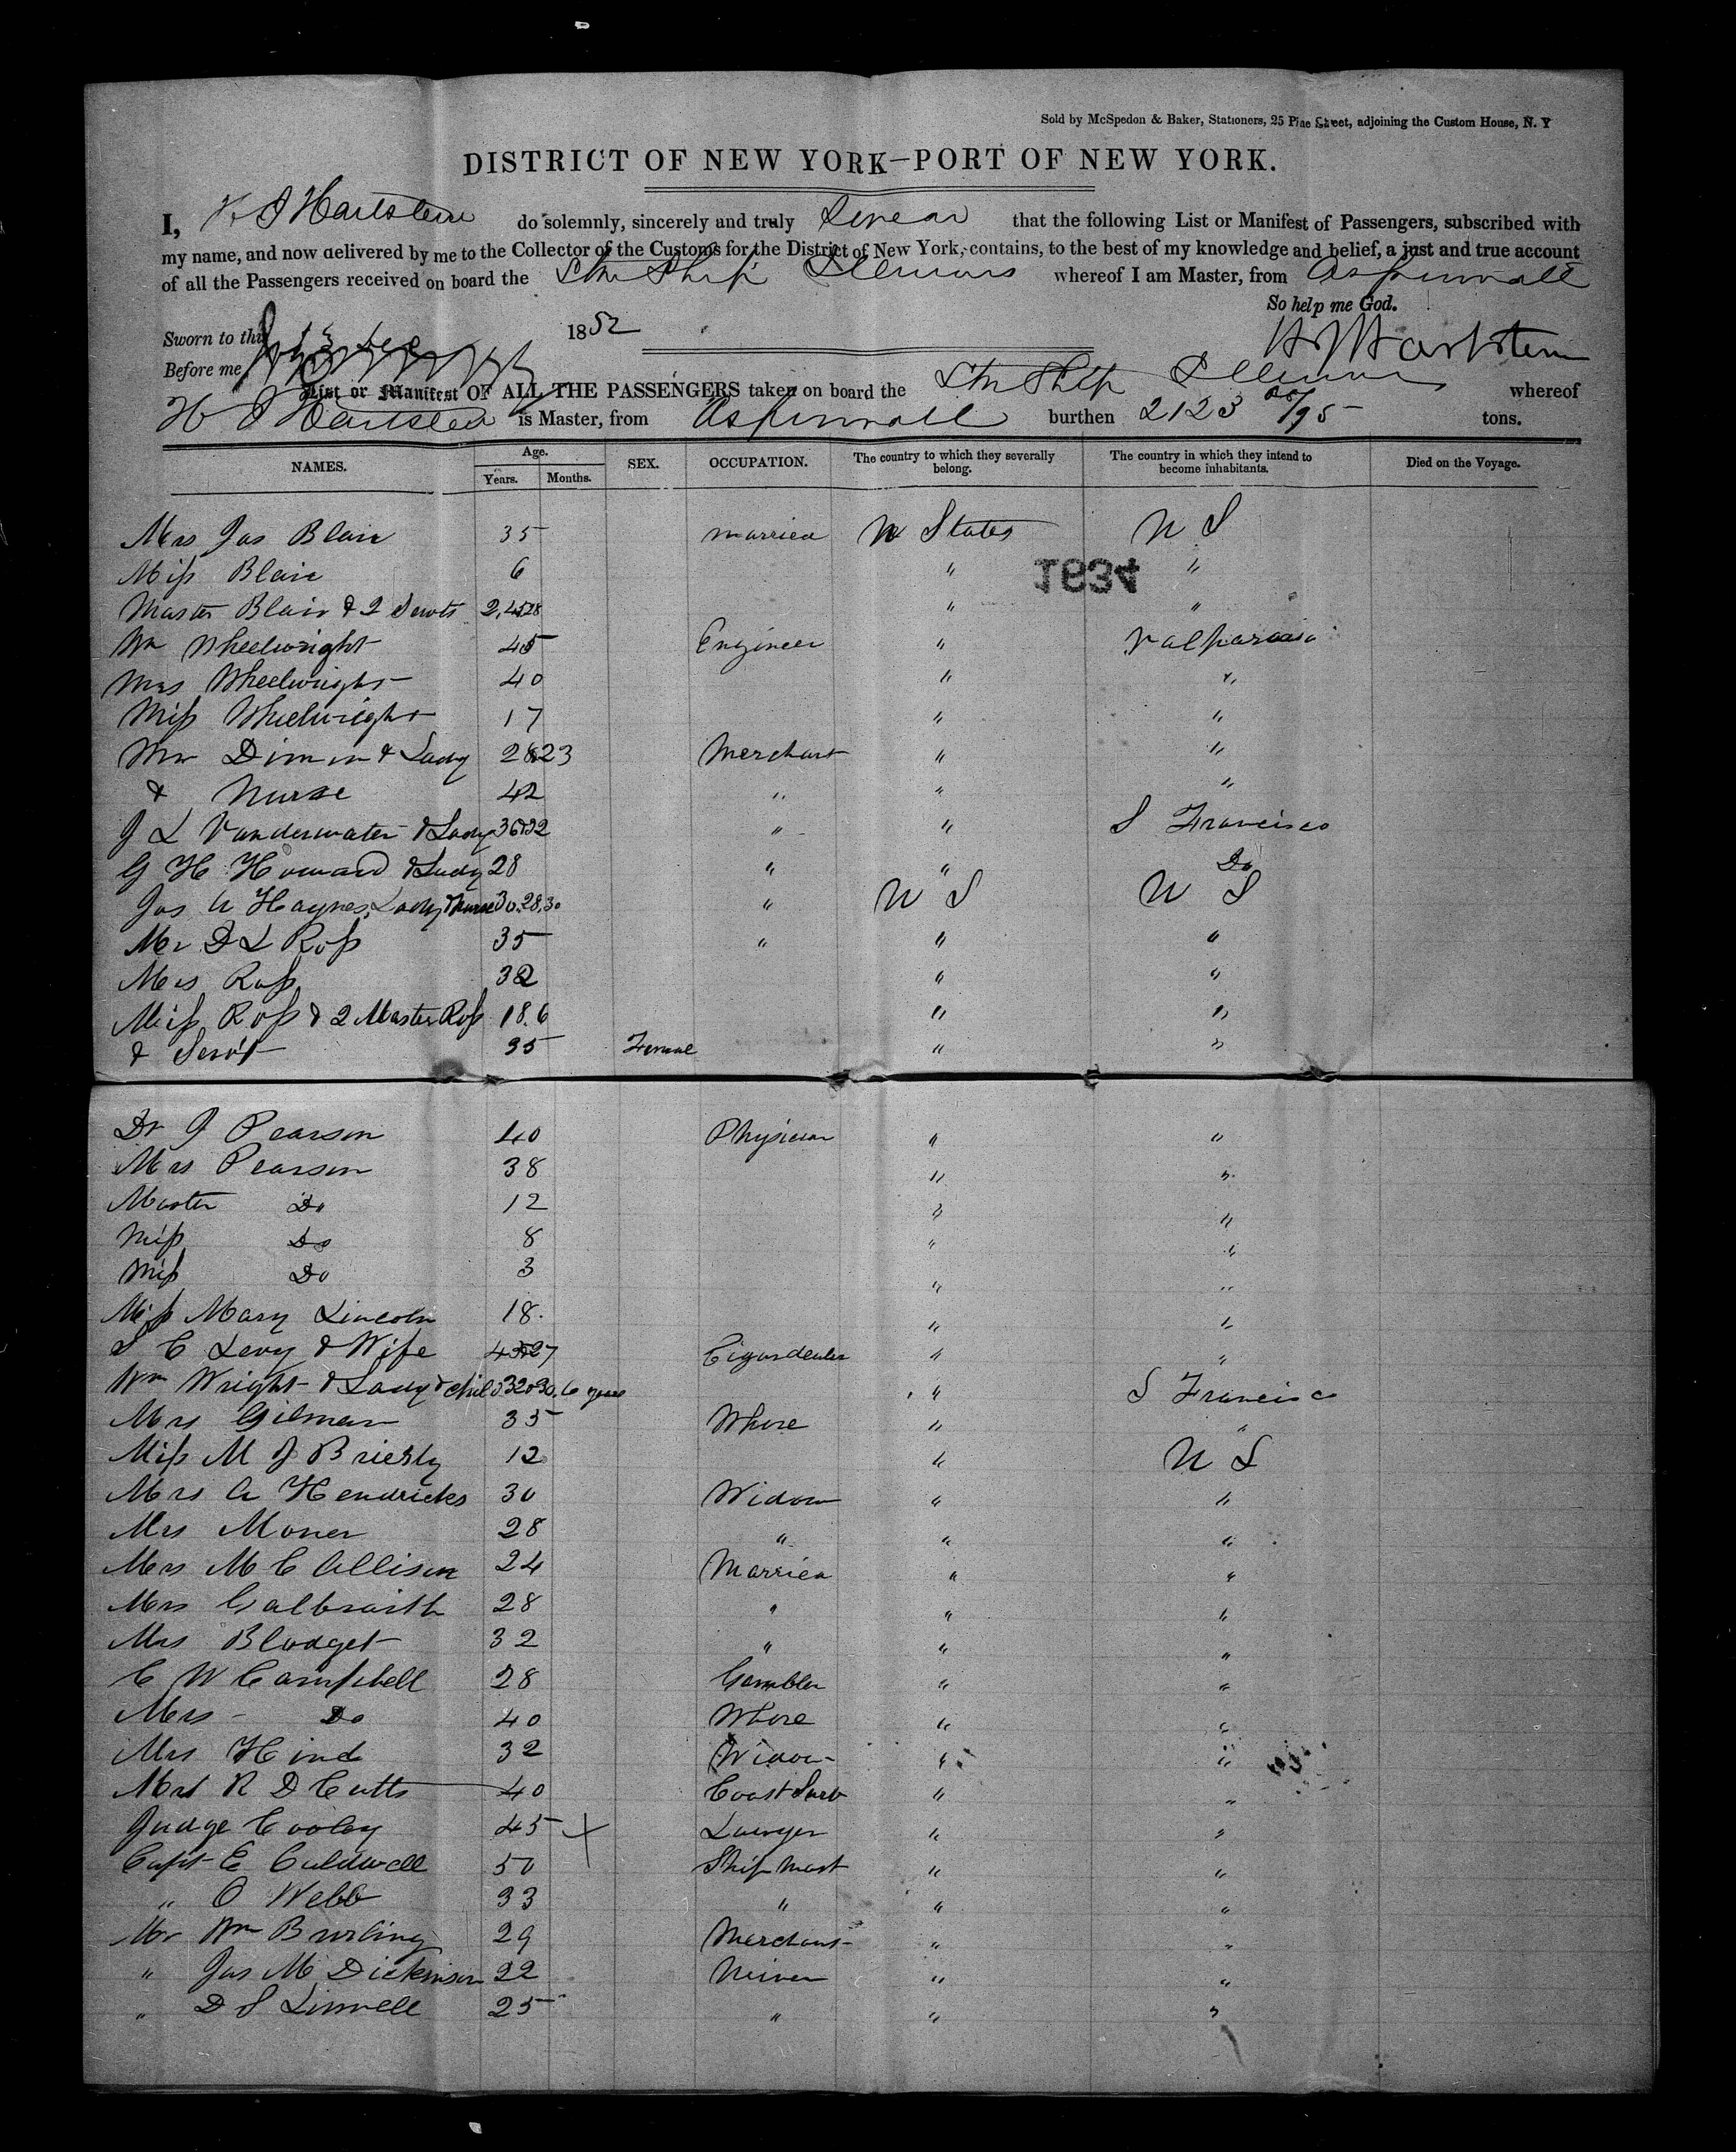 Sold by McSpedon & Baker, Stationers, 25 Pine Street, adjoining the Custom House, N. Y
DISTRICT OF NEW YORK—PORT OF NEW YORK.
I, H J Hartstein do solemnly, sincerely and truly Swear that the following List or Manifest of Passengers, subscribed with
my name, and now delivered by me to the Collector of the Customs for the District of New York, contains, to the best of my knowledge and belief, a just and true account
of all the Passengers received on board the Stm Ship Illinois whereof I am Master, from Aspinwall
So help me God.
Sworn to this 13 Dec 1852
H J Hartstein
Before me
List or Manifest OF ALL THE PASSENGERS taken on board the Stm Ship Illinois whereof
H J Hartstein is Master, from Aspinwall burthen 2123 /95 tons.
NAMES. Age. Years. Months. SEX. OCCUPATION. The country to which they severally belong. The country in which they intend to become inhabitants. Died on the Voyage.
Mrs Jas Blair 35 married U States U S
Miss Blair 6 " "
1834
Master Blair & 2 Servts 2,45,28 " "
Wm Wheelwright 45 Engineer " Valparaiso
Mrs Wheelwright 40 " "
Miss Wheelwright 17 " "
Mr Dimin & Lady 28&23 Merchant " "
& Nurse 42 " " "
J L Vanderwater & Lady 36&22 " " S Francisco
G H Howard & Lady 28 " " Do
Jas A Haynes, Lady & Nurse 30.28.30 " U S U S
Mr D L Ross 35 " " "
Mrs Ross 32 " "
Miss Ross & 2 Master Ross 18.6 " "
& Servt 35 Female " "
Dr J Pearson 40 Physician " "
Mrs Pearson 38 " "
Master Do 12 " "
Miss Do 8 " "
Miss Do 3 " "
Miss Mary Lincoln 18. " "
S C Levy & Wife 45&27 Cigardealer " "
Wm Wright & Lady & child 32&30.6 " S Francisco
Mrs Gilman 35 Whore " "
Miss M J Briesly 12 " U S
Mrs A Hendricks 30 Widow " "
Mrs Moner 28 " " "
Mrs M C Allison 24 Married " "
Mrs Galbraith 28 " " "
Mrs Blodget 32 " " "
C W Campbell 28 Gambler " "
Mrs - Do 40 Whore " "
Mrs Hind 32 Widow " "
Mrs R D Cutts 40 Coast Surv " "
Judge Cooley 45 X Lawyer " "
Capt E Caldwell 50 Ship Mast " "
" O Webb 33 " " "
Mr Wm Burling 29 Merchant " "
" Jas M Dickinson 22 Miner " "
" D S Linnell 25 " " "